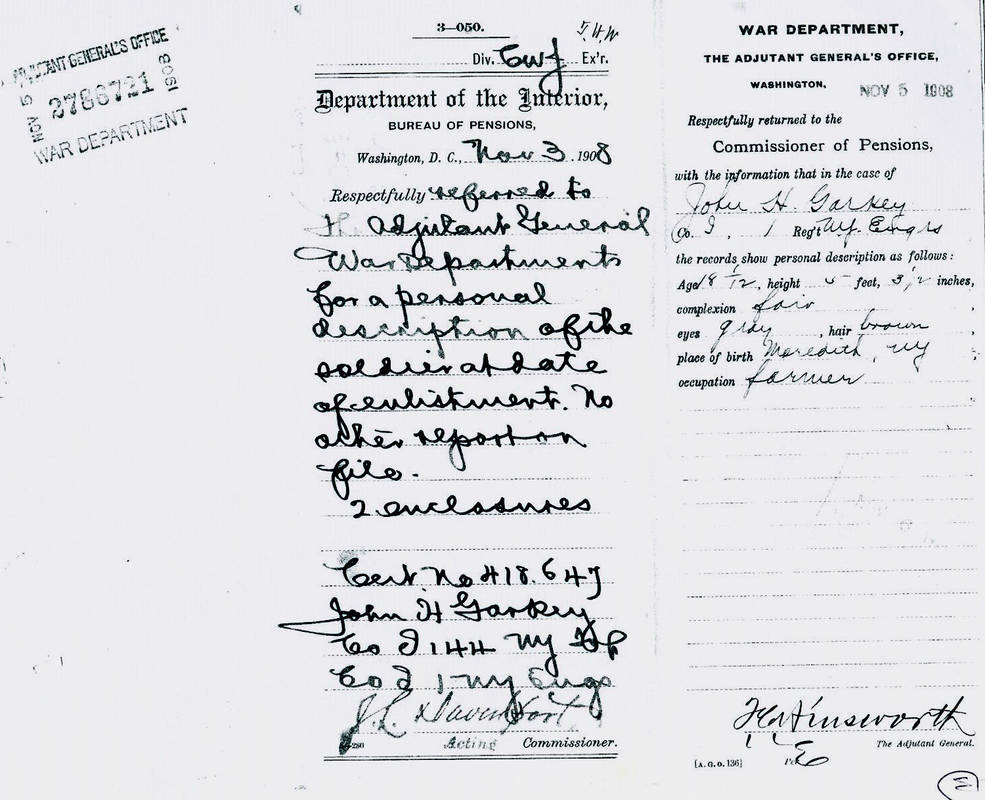 ADJUTANT GENERAL'S OFFICE
NOV 5 2786721 1908
WAR DEPARTMENT
3—050.
Div. Ex'r.
Department of the Interior,
BUREAU OF PENSIONS,
Washington, D. C., Nov 3, 1908
Respectfully referred to
the Adjutant General
War Departments
for a personal
description of the
soldier at date
of enlistment. No
other report on
file.
2 enclosures
Cert. No 418.647
John H Garkey
Co I 144 NY
Co I 1 NY Engs
J L Davenport
Acting Commissioner.
WAR DEPARTMENT,
THE ADJUTANT GENERAL'S OFFICE,
WASHINGTON. NOV 5 1908
Respectfully returned to the
Commissioner of Pensions,
with the information that in the case of
John H. Garkey
Co. I, 1 Reg't NY. Engrs
the records show personal description as follows:
Age 18 /12, height 5 feet, 3 1/2 inches,
complexion fair,
eyes gray, hair brown,
place of birth Meredith, NY;
occupation farmer
F C Ainsworth
The Adjutant General.
[A. G. O. 136] Per E